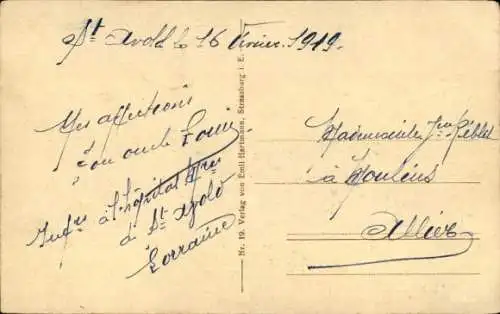 St Avold le 16 Février 1919.
Mes affections
Ton oncle Louis
Infre à l'hôpital
à St Avold
Lorraine
Nr. 19. Verlag von Emil Hartmann, Strassburg i. E.
Mademoiselle
à Moulins
Allier